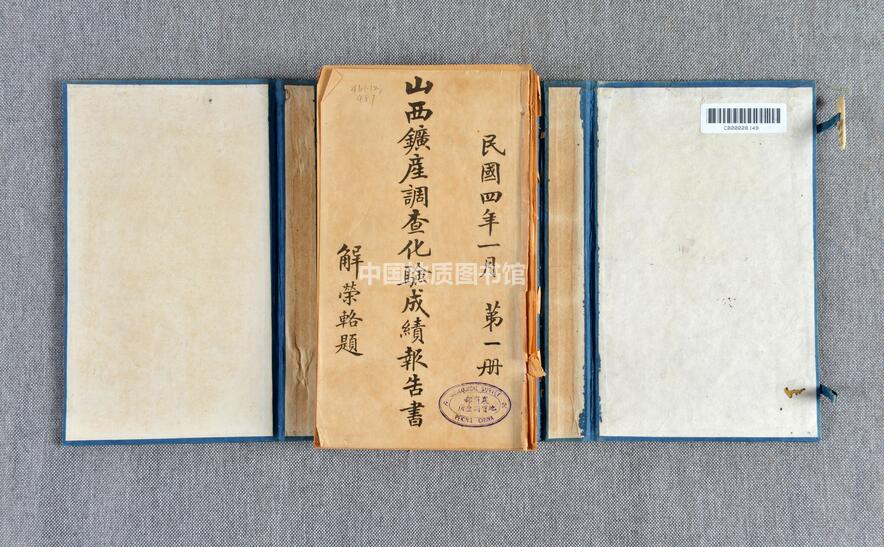 民國四年一月 第一册
山西鑛產調查化驗成績報告書
解榮輅題
中国地质图书馆
CHINA